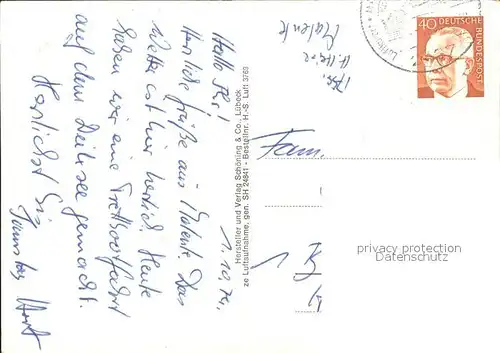 Hallo Ihr!
Herzliche Grüße aus Malente. Das
Wetter ist hier herrlich. Heute
haben wir eine Tretbootfahrt
auf dem Dieksee gemacht.
Herzlichst
1.10.74
Malente
Hersteller und Verlag Schöning & Co., Lübeck
ze Luftaufnahme, gen. SH 24841 - Bestellnr. H.-S. Luft 3763
40 DEUTSCHE
BUNDESPOST
Luftkuror
Fam.
privacy protection
Datenschutz